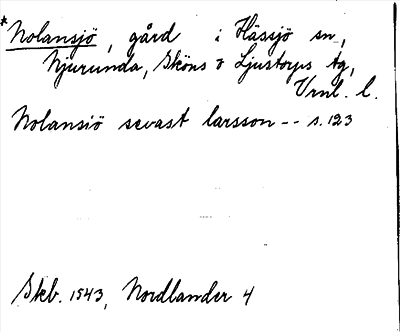 *Nolansjö, gård i Hässjö sn,
Njurunda, Sköns o Ljustorps tg,
Vrnl. l.
Nolansiö sevast larsson -- s. 123
Skb. 1543, Nordlander 4